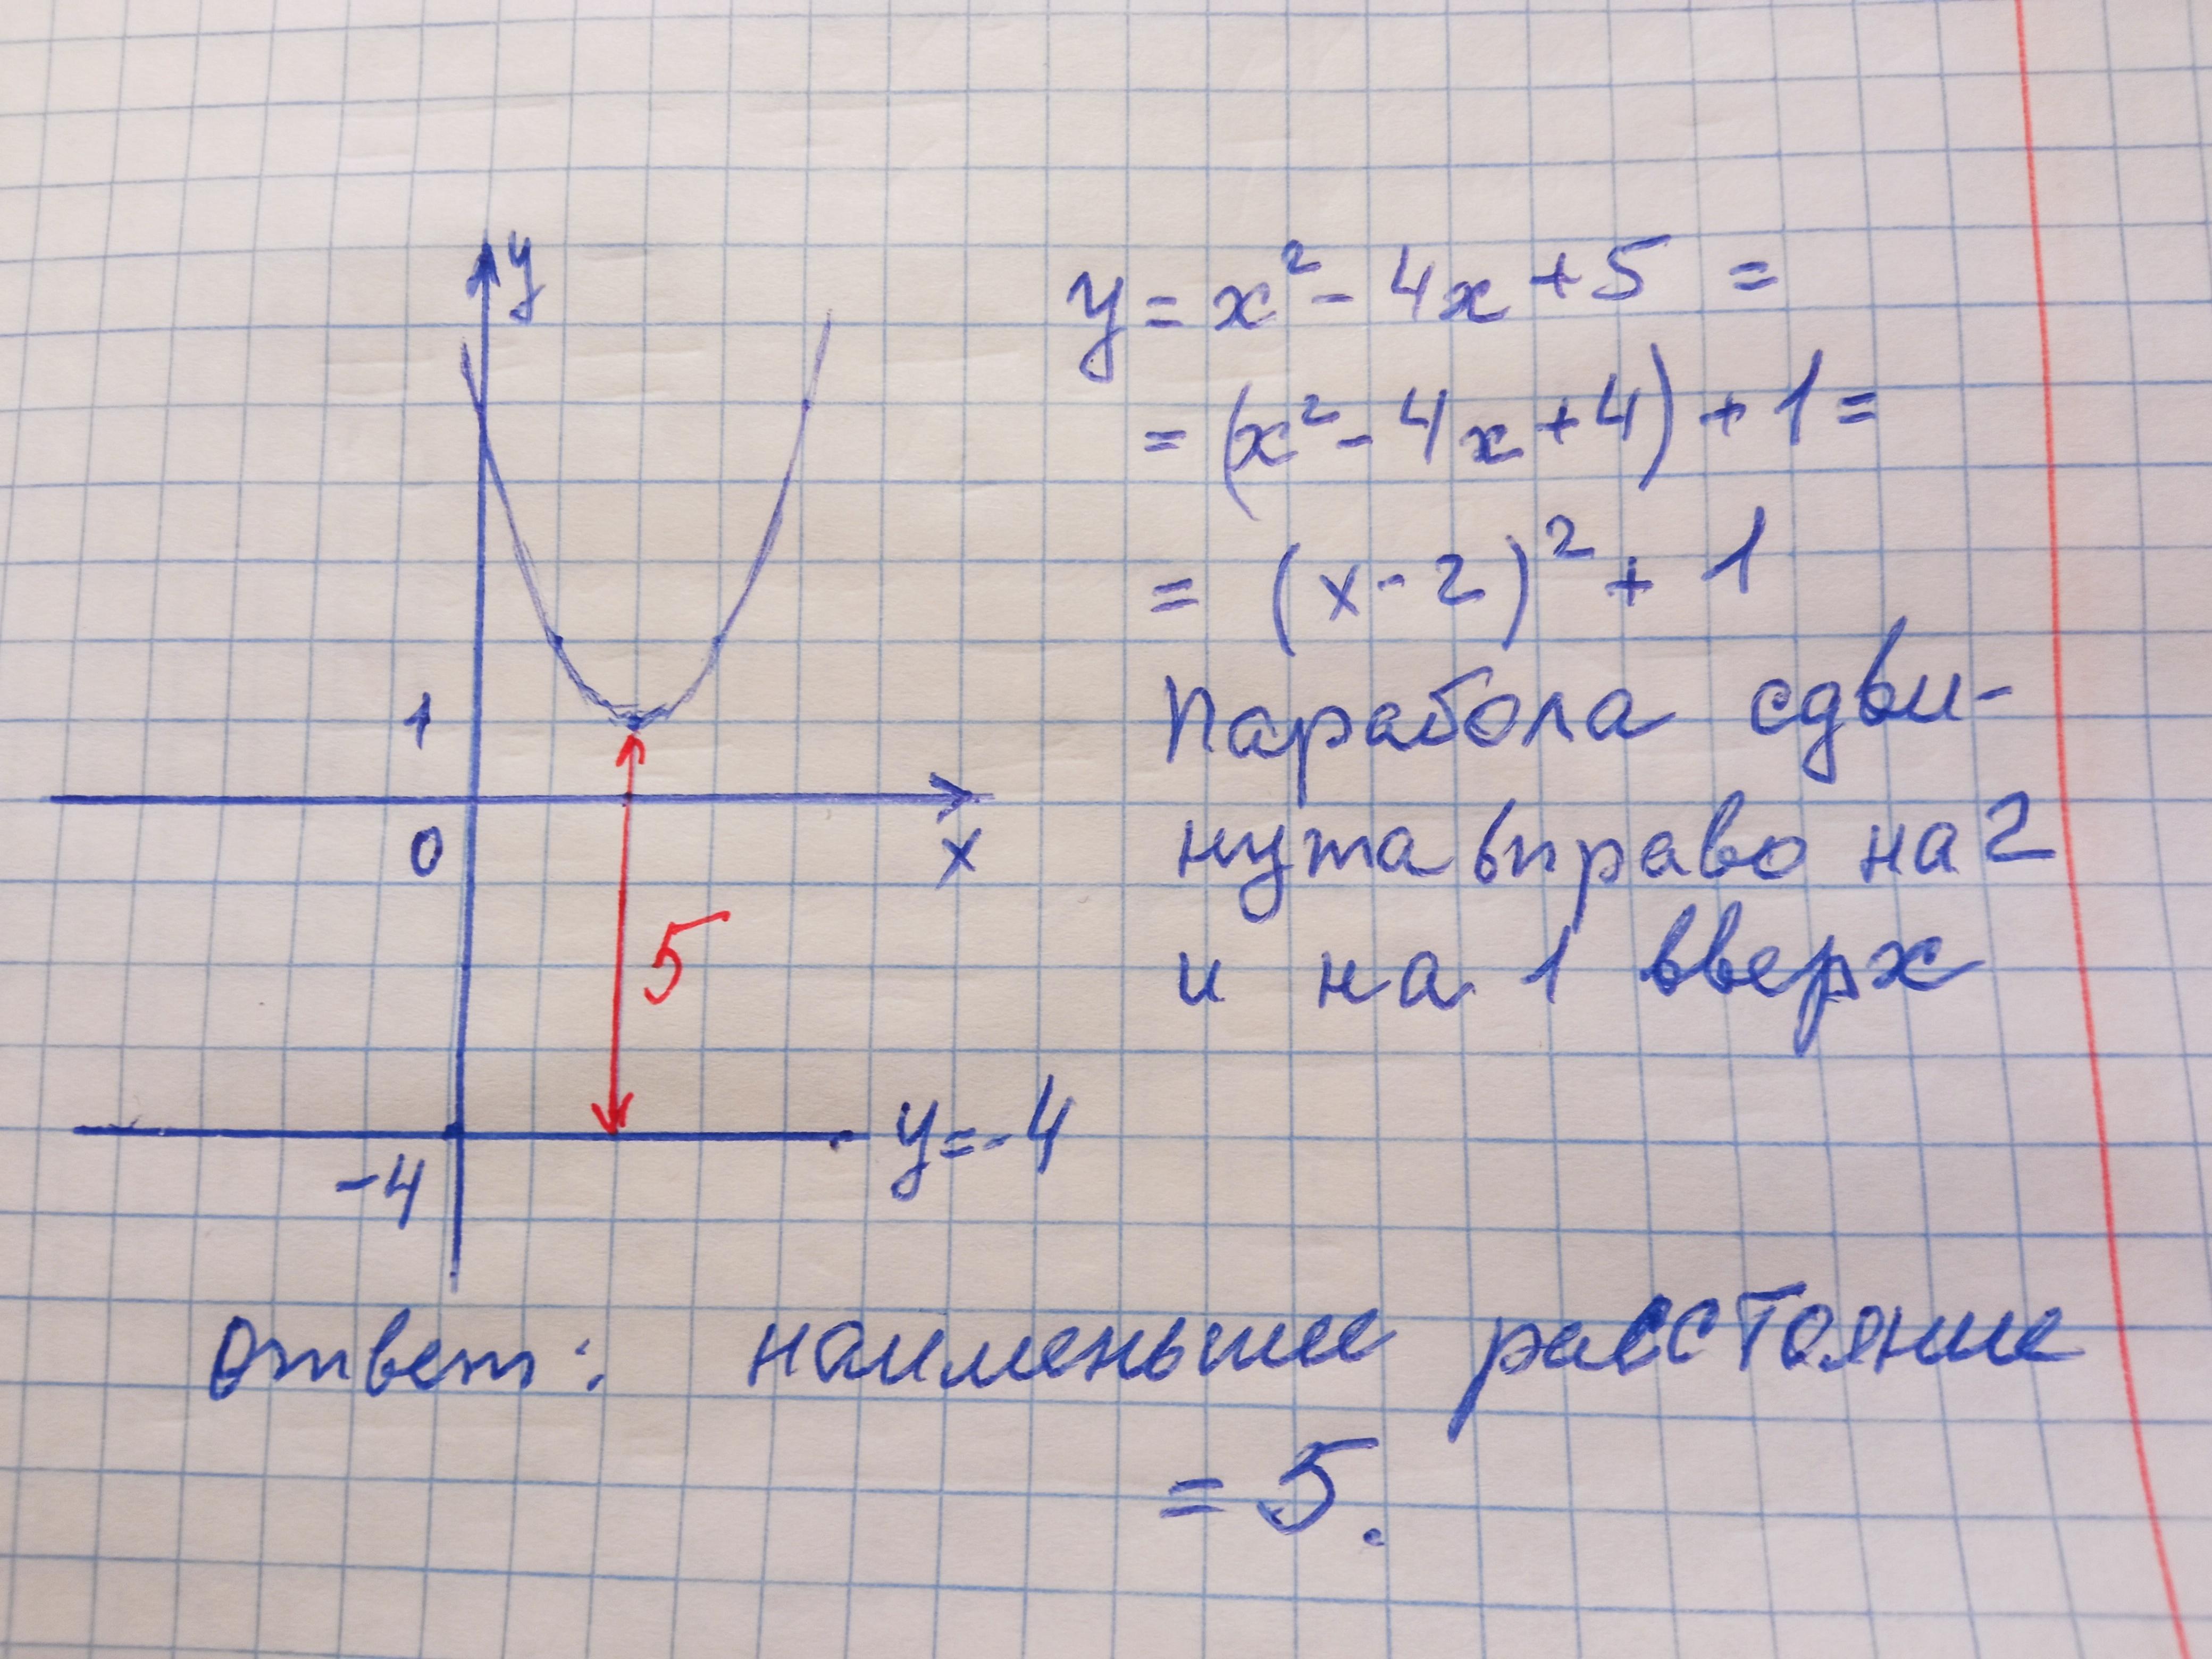 y
y = x² - 4x + 5 =
= (x² - 4x + 4) + 1 =
= (x - 2)² + 1
Парабола сдви-
нута вправо на 2
и на 1 вверх
1
0
x
5
y = -4
-4
Ответ: наименьшее расстояние
= 5.